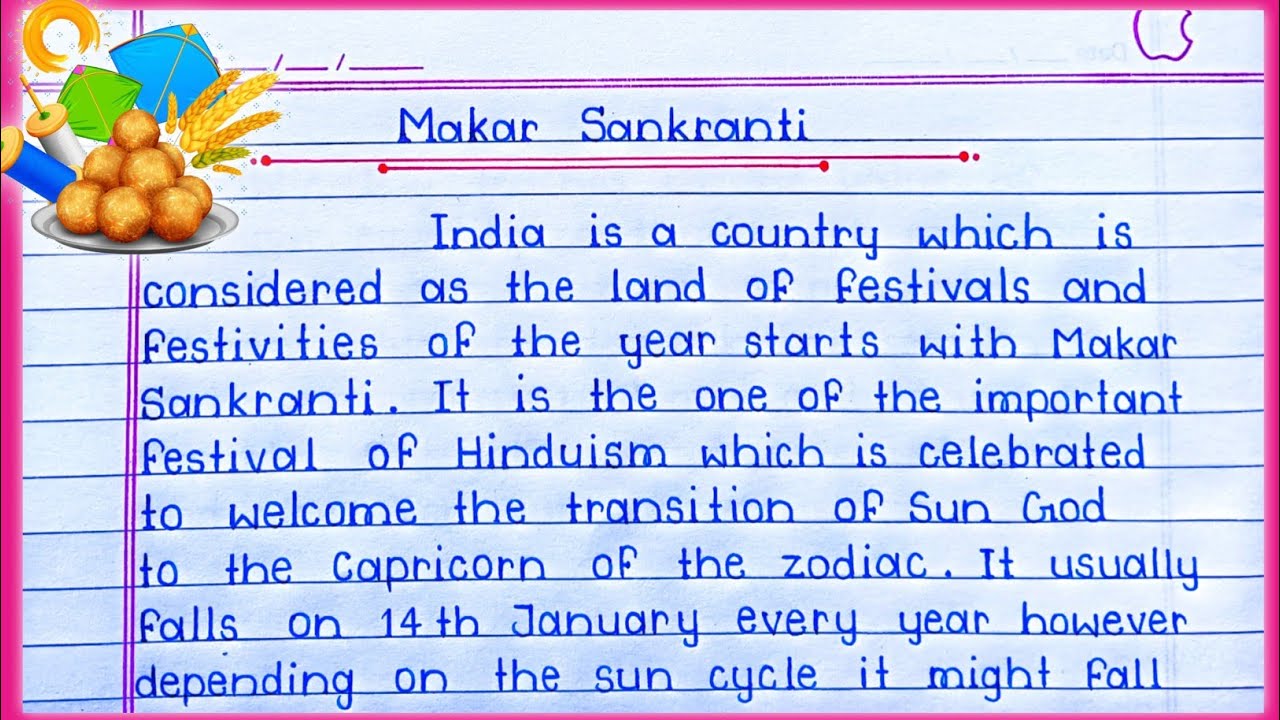 Makar Sankranti
India is a country which is
considered as the land of festivals and
festivities of the year starts with Makar
Sankranti. It is the one of the important
festival of Hinduism which is celebrated
to welcome the transition of Sun God
to the Capricorn of the zodiac. It usually
falls on 14th January every year however
depending on the sun cycle it might fall